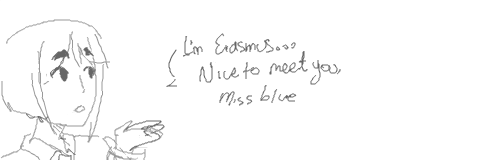 I'm Erasmus...
Nice to meet you,
miss blue